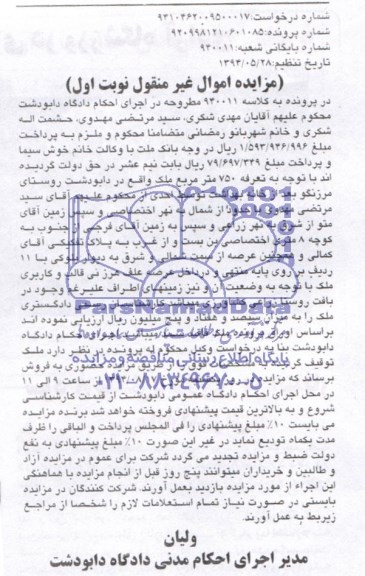 شماره درخواست: ۹۳۱۰۴۶۲۰۰۹۵۰۰۰۱۷
شماره پرونده: ۹۲۰۹۹۸۱۲۱۰۶۰۱۰۸۵
شماره بایگانی شعبه: ۹۳۰۰۱۱
تاریخ تنظیم: ۱۳۹۳/۰۵/۲۸
(مزایده اموال غیر منقول نوبت اول)
در پرونده به کلاسه ۹۳۰۰۱۱ مطروحه در اجرای احکام دادگاه دابودشت
محکوم علیهم آقایان مهدی شکری، سید مرتضی مهدوی، حشمت اله
شکری و خانم شهربانو رمضانی متضامنا محکوم و ملزم به پرداخت
مبلغ ۱/۵۹۳/۹۳۶/۹۹۶ ریال در وجه بانک ملت با وکالت خانم خوش سیما
و پرداخت مبلغ ۷۹/۶۹۷/۳۳۹ ریال بابت نیم عشر در حق دولت گردیده
اند با توجه به تعرفه ۷۵۰ متر مربع ملک واقع در دابودشت روستای
مرزنگو توسط احدی از محکوم علیهم آقای سید
مرتضی مهدوی با حدود از شمال به نهر اختصاصی و سپس زمین آقای
متو از شرق به نهر زراعی و سپس به زمین آقای فرجی از جنوب به
کوچه ۸ متری اختصاصی بن بست و از غرب به پلاک تفکیکی آقای
کمالی و همچنین عرصه از سمت شمال و شرق به دیوار بلوکی با ۱۱
ردیف بر روی پایه منتهی و در داخل عرصه علف هرز نی قالب و کاربری
ملک با توجه به وضعیت آن و نیز زمینهای اطراف علیرغم وجود در
بافت روستا زراعی کشاورزی میباشد کارشناس رسمی دادگستری
ملک را به میزان سیصد و هفتاد و پنج میلیون ریال ارزیابی نموده اند
براساس اوراق پرونده ملک فاقد سند میباشد اجرای احکام دادگاه
دابودشت بنا به درخواست وکیل محکوم له پرونده در نظر دارد ملک
توقیف گردیده به مشخصات فوق را از طریق مزایده حضوری به فروش
برساند که مزایده در روز از ساعت ۹ الی ۱۱
در محل اجرای احکام دادگاه عمومی دابودشت از قیمت کارشناسی
شروع و به بالاترین قیمت پیشنهادی فروخته خواهد شد برنده مزایده
می بایست ۱۰٪ مبلغ پیشنهادی را فی المجلس پرداخت و الباقی را ظرف
مدت یکماه تودیع نماید در غیر این صورت ۱۰٪ مبلغ پیشنهادی به نفع
دولت ضبط و مزایده تجدید می گردد شرکت برای عموم در مزایده آزاد
و طالبین و خریداران میتوانند پنج روز قبل از انجام مزایده با هماهنگی
این اجراء از مورد مزایده بازدید بعمل آورند. شرکت کنندگان در مزایده
بایستی در صورت نیاز تمام استعلامات لازم را شخصا از مراجع
زیربط به عمل آورند.
ولیان
مدیر اجرای احکام مدنی دادگاه دابودشت
ParsNamadData
پایگاه اطلاع رسانی مناقصه و مزایده
۰۲۱-۸۸۳۴۹۶۷۰-۵